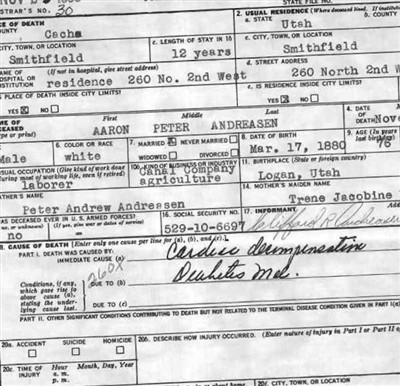 STRAR'S NO. 30
STATE FILE NO.
CE OF DEATH
2. USUAL RESIDENCE (Where deceased lived. If institution
OUNTY
Cache
a. STATE
Utah
b. COUNTY
CITY, TOWN, OR LOCATION
c. LENGTH OF STAY IN
c. CITY, TOWN, OR LOCATION
Smithfield
12 years
Smithfield
NAME OF
HOSPITAL OR
INSTITUTION
(If not in hospital, give street address)
residence 260 No. 2nd West
d. STREET ADDRESS
260 North 2nd West
IS PLACE OF DEATH INSIDE CITY LIMITS?
YES NO
e. IS RESIDENCE INSIDE CITY LIMITS?
YES NO
First Middle Last
AARON PETER ANDREASEN
4. DATE OF DEATH
6. COLOR OR RACE
7. MARRIED NEVER MARRIED
8. DATE OF BIRTH
9. AGE (In years
last birthday)
Male
white
WIDOWED DIVORCED
Mar. 17, 1880
76
USUAL OCCUPATION (Give kind of work done
during most of working life, even if retired)
10b. KIND OF BUSINESS OR INDUSTRY
11. BIRTHPLACE (State or foreign country)
laborer
Canal Company
agriculture
Logan, Utah
14. MOTHER'S MAIDEN NAME
Peter Andrew Andreasen
Trene Jacobine
AS DECEASED EVER IN U.S. ARMED FORCES?
16. SOCIAL SECURITY NO.
17. INFORMANT
no
529-10-6697
CAUSE OF DEATH [Enter only one cause per line for (a), (b), and (c).]
PART I. DEATH WAS CAUSED BY:
IMMEDIATE CAUSE (a)
Cardiac decompensation
260X
Conditions, if any,
which gave rise to
above cause (a),
stating the under-
lying cause last.
DUE TO (b)
Diabetis Mel.
DUE TO (c)
PART II. OTHER SIGNIFICANT CONDITIONS CONTRIBUTING TO DEATH BUT NOT RELATED TO THE TERMINAL DISEASE CONDITION GIVEN IN PART I(a)
20a. ACCIDENT SUICIDE HOMICIDE
20b. DESCRIBE HOW INJURY OCCURRED. (Enter nature of injury in Part I or Part II of
20c. TIME OF
INJURY
Hour Month, Day, Year
a. m.
p. m.
20f. CITY, TOWN, OR LOCATION